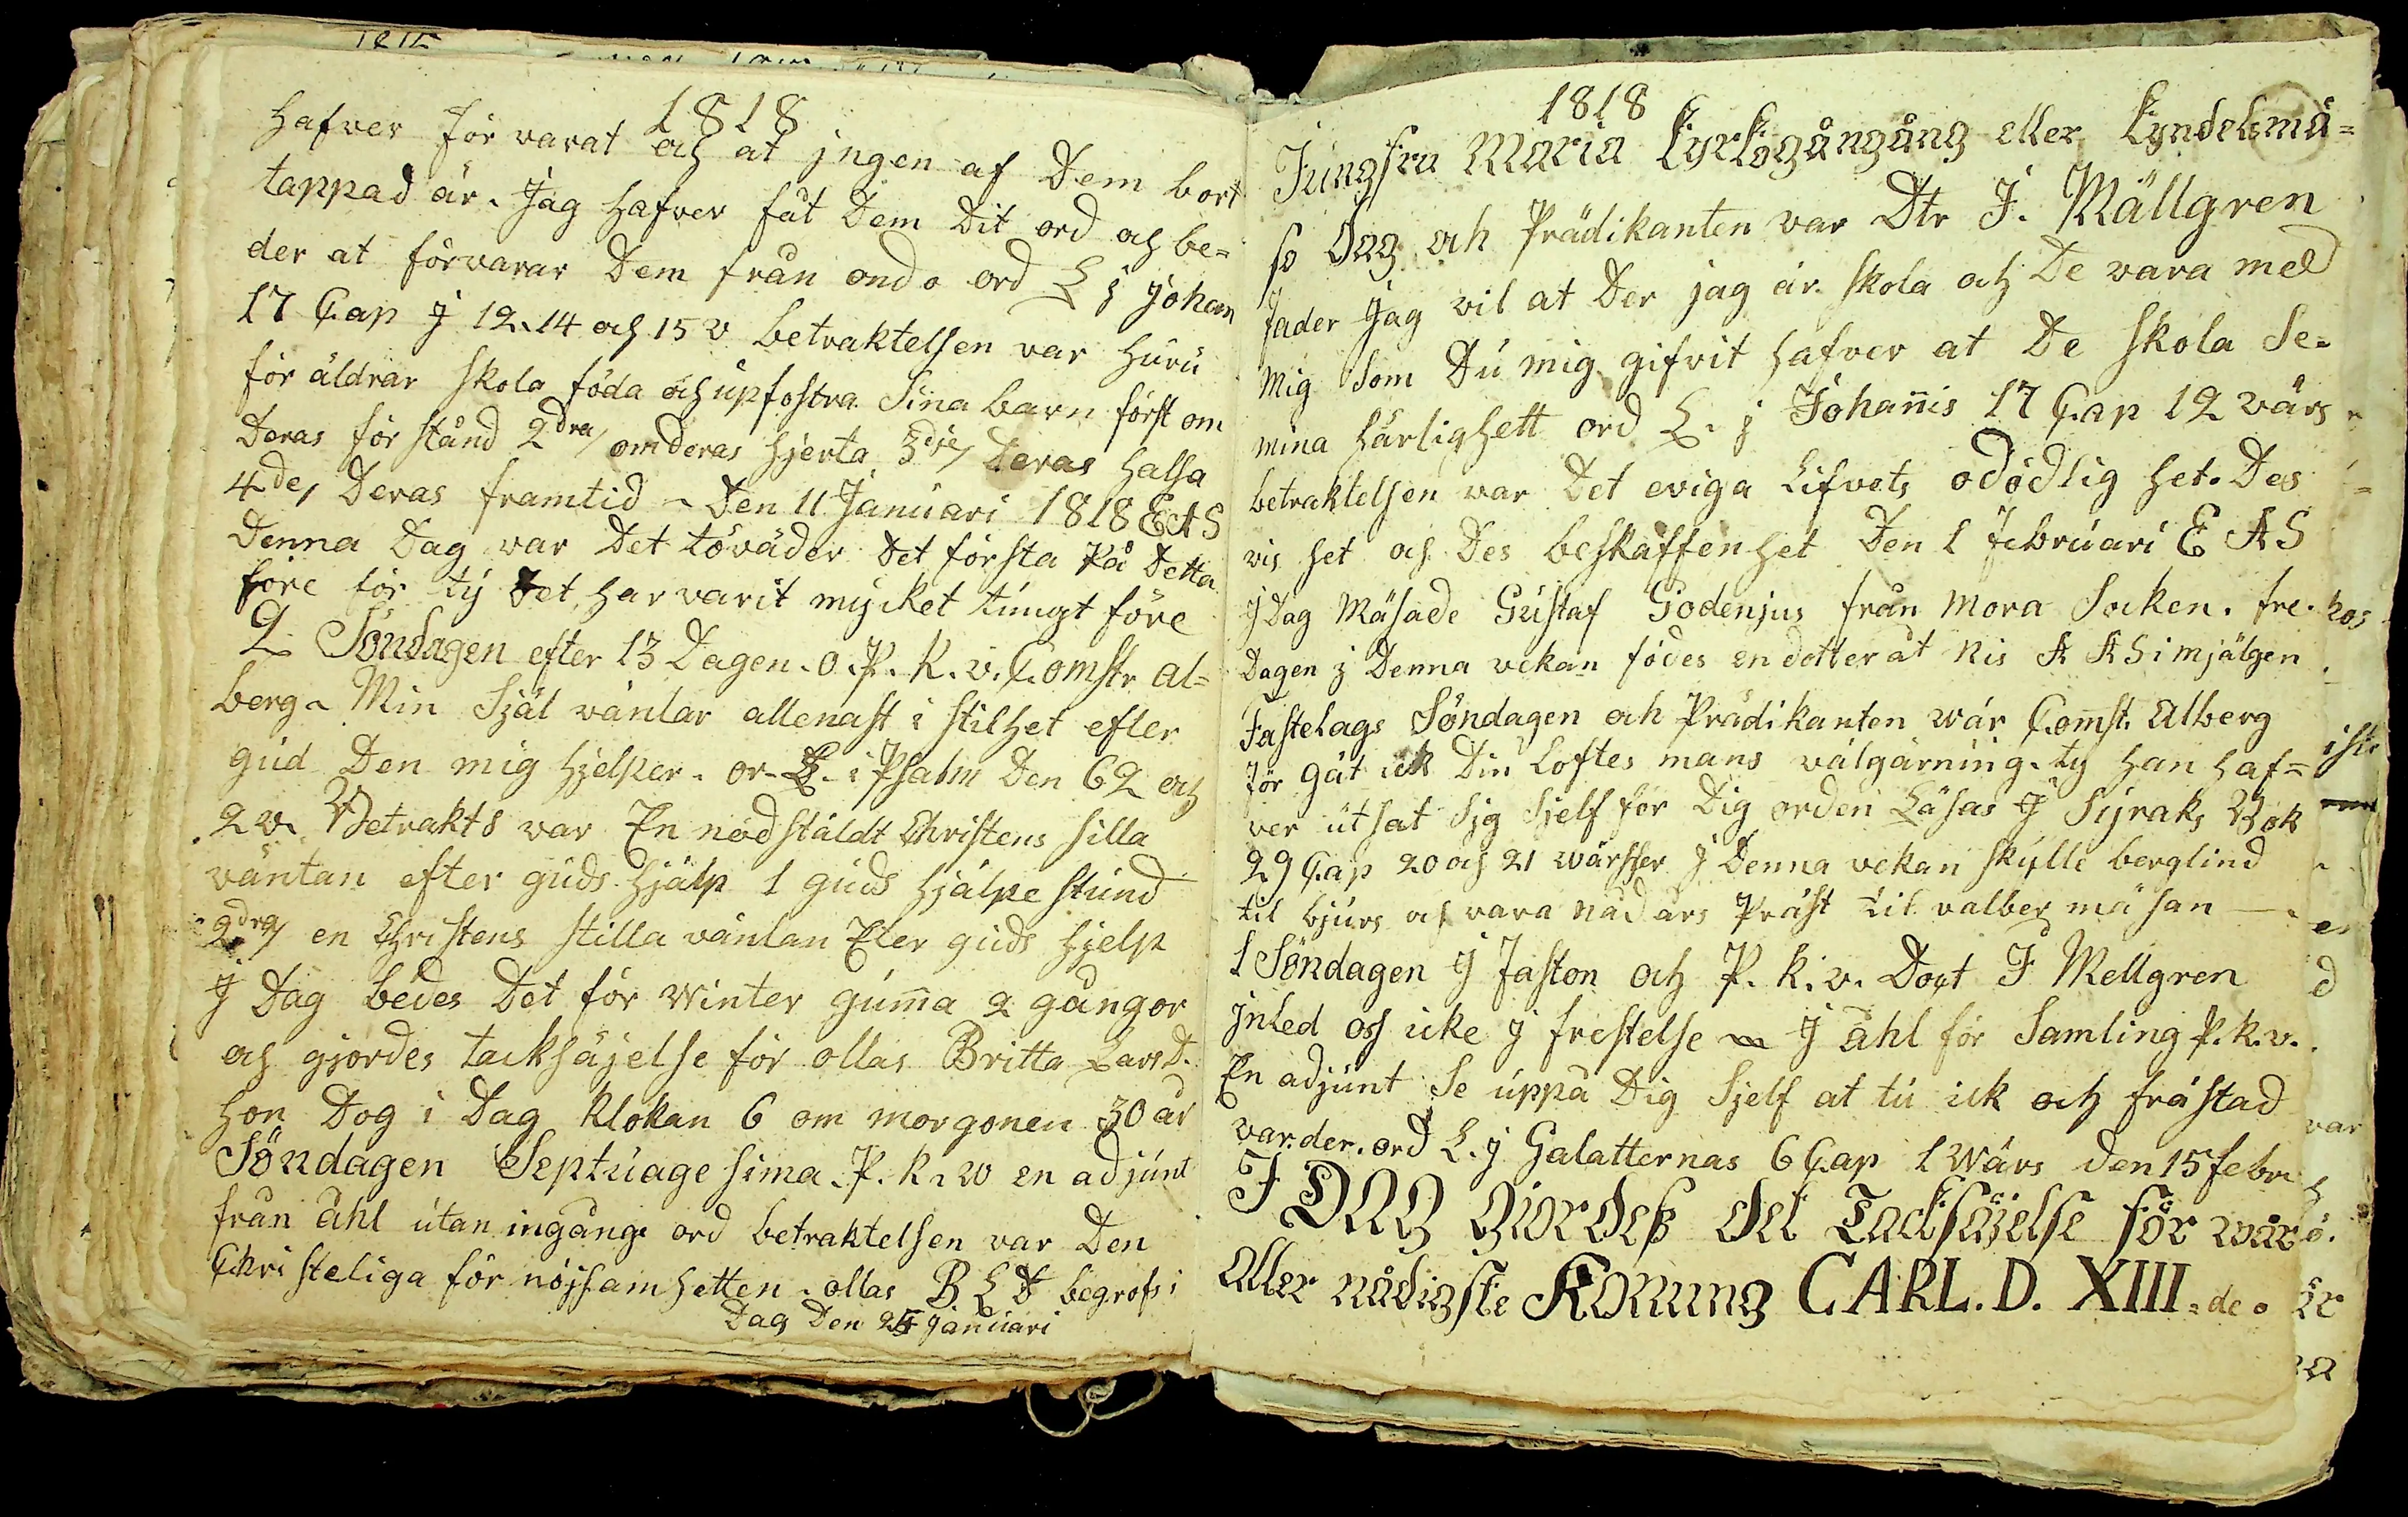 1818
hafver för varat och at jngen af Dem bort
tappad är. Jag hafver fåt Dem Dit ord och be=
der at förvarar Dem från onda ord L j Johan
17 Cap J 12.14 och 15 v betraktelsen var huru
för äldrar skola föda och upfostra Sina barn först om
Deras för stånd 2dra/ om deras hjerta 3dje/ Deras halsa
4de/ Deras framtid Den 11 Januari 1818 EAS
Denna Dag var Det töväder Det första På Detta
före för ty Det har varit mycket tungt före
2 Söndagen efter 13 Dagen. O. P. K. v. Comstr Al=
berg. Min Själ väntar allenast i stilhet efter
gud Den mig hjelper. or. L. i Psalm Den 62 och
2 v. Betrakts var En nödstäldt Christens silla
väntan efter guds hjälp 1 guds hjälpe stund
2dra/ en Christens stilla väntan Eter guds hjelp
J Dag bedes Det för Winter gumma 2 gångor
och gjordes tacksäjelse för ollas Britta Lars D.
hon Dog i Dag klokan 6 om morgonen 30 år
Söndagen Septuage sima. P. K. w en adjunt
från åhl utan ingång ord betraktelsen var Den
Christeliga för nöjsamhetten. ollas B L D begrofs i
Dag Den 25 januari
1818
Jungfru Maria Kyrkogångång eller Kyndelsmä=
so Dag och Prädikanten var Dtr J. Mällgren
Fader Jag vil at Der jag är skola och De vara med
mig Som Du mig gifvit hafver at De skola Se.
mina härlighett ord L. j Johannis 17 Cap 12 värs
betraktelsen var Det eviga Lifvets odödlig het. Des
vis het och Des beskaffenhet Den 1 februari E A S
J Dag Mäsade Gustaf Godenjus från Mora Socken. fre.
Dagen j Denna vekan födes en dotter åt Nis A A S i mjälgen
Fastelags Söndagen och Prädikanten wár Comst. Alberg
För gät ick Din Loftes mans välgärning. ty han haf=
ver utsat Sjg Sjelf för Dig orden Läsas J Syraks Bok
29 Cap 20 och 21 wärsser J Denna vekan skylle berglind
til bjurs och vara nådårs Präst til valber mäsan —
1 Söndagen J Faston och P. K. v. Doct J Mellgren
jnled oss icke j frestelse J åhl för Samling P. K. v.
En adjunt Se uppå Dig Sjelf at tu ick och fråstad
varder. ord L. j Galatternas 6 Cap 1 Wärs den 15 febru
I DAG giordeß det Tacksäjelse för wår
Aller nådigste Konung CARL. D. XIII=de.